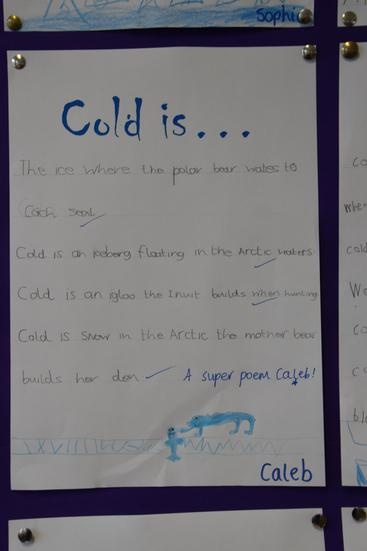 Sophi
Cold is...
The ice where the polar bear waites to
Cach seal
Cold is an iceberg floating in the Arctic waters
Cold is an igloo the Inuit builds when hunting
Cold is snow in the Arctic the mother bear
builds her den A super poem Caleb!
Caleb